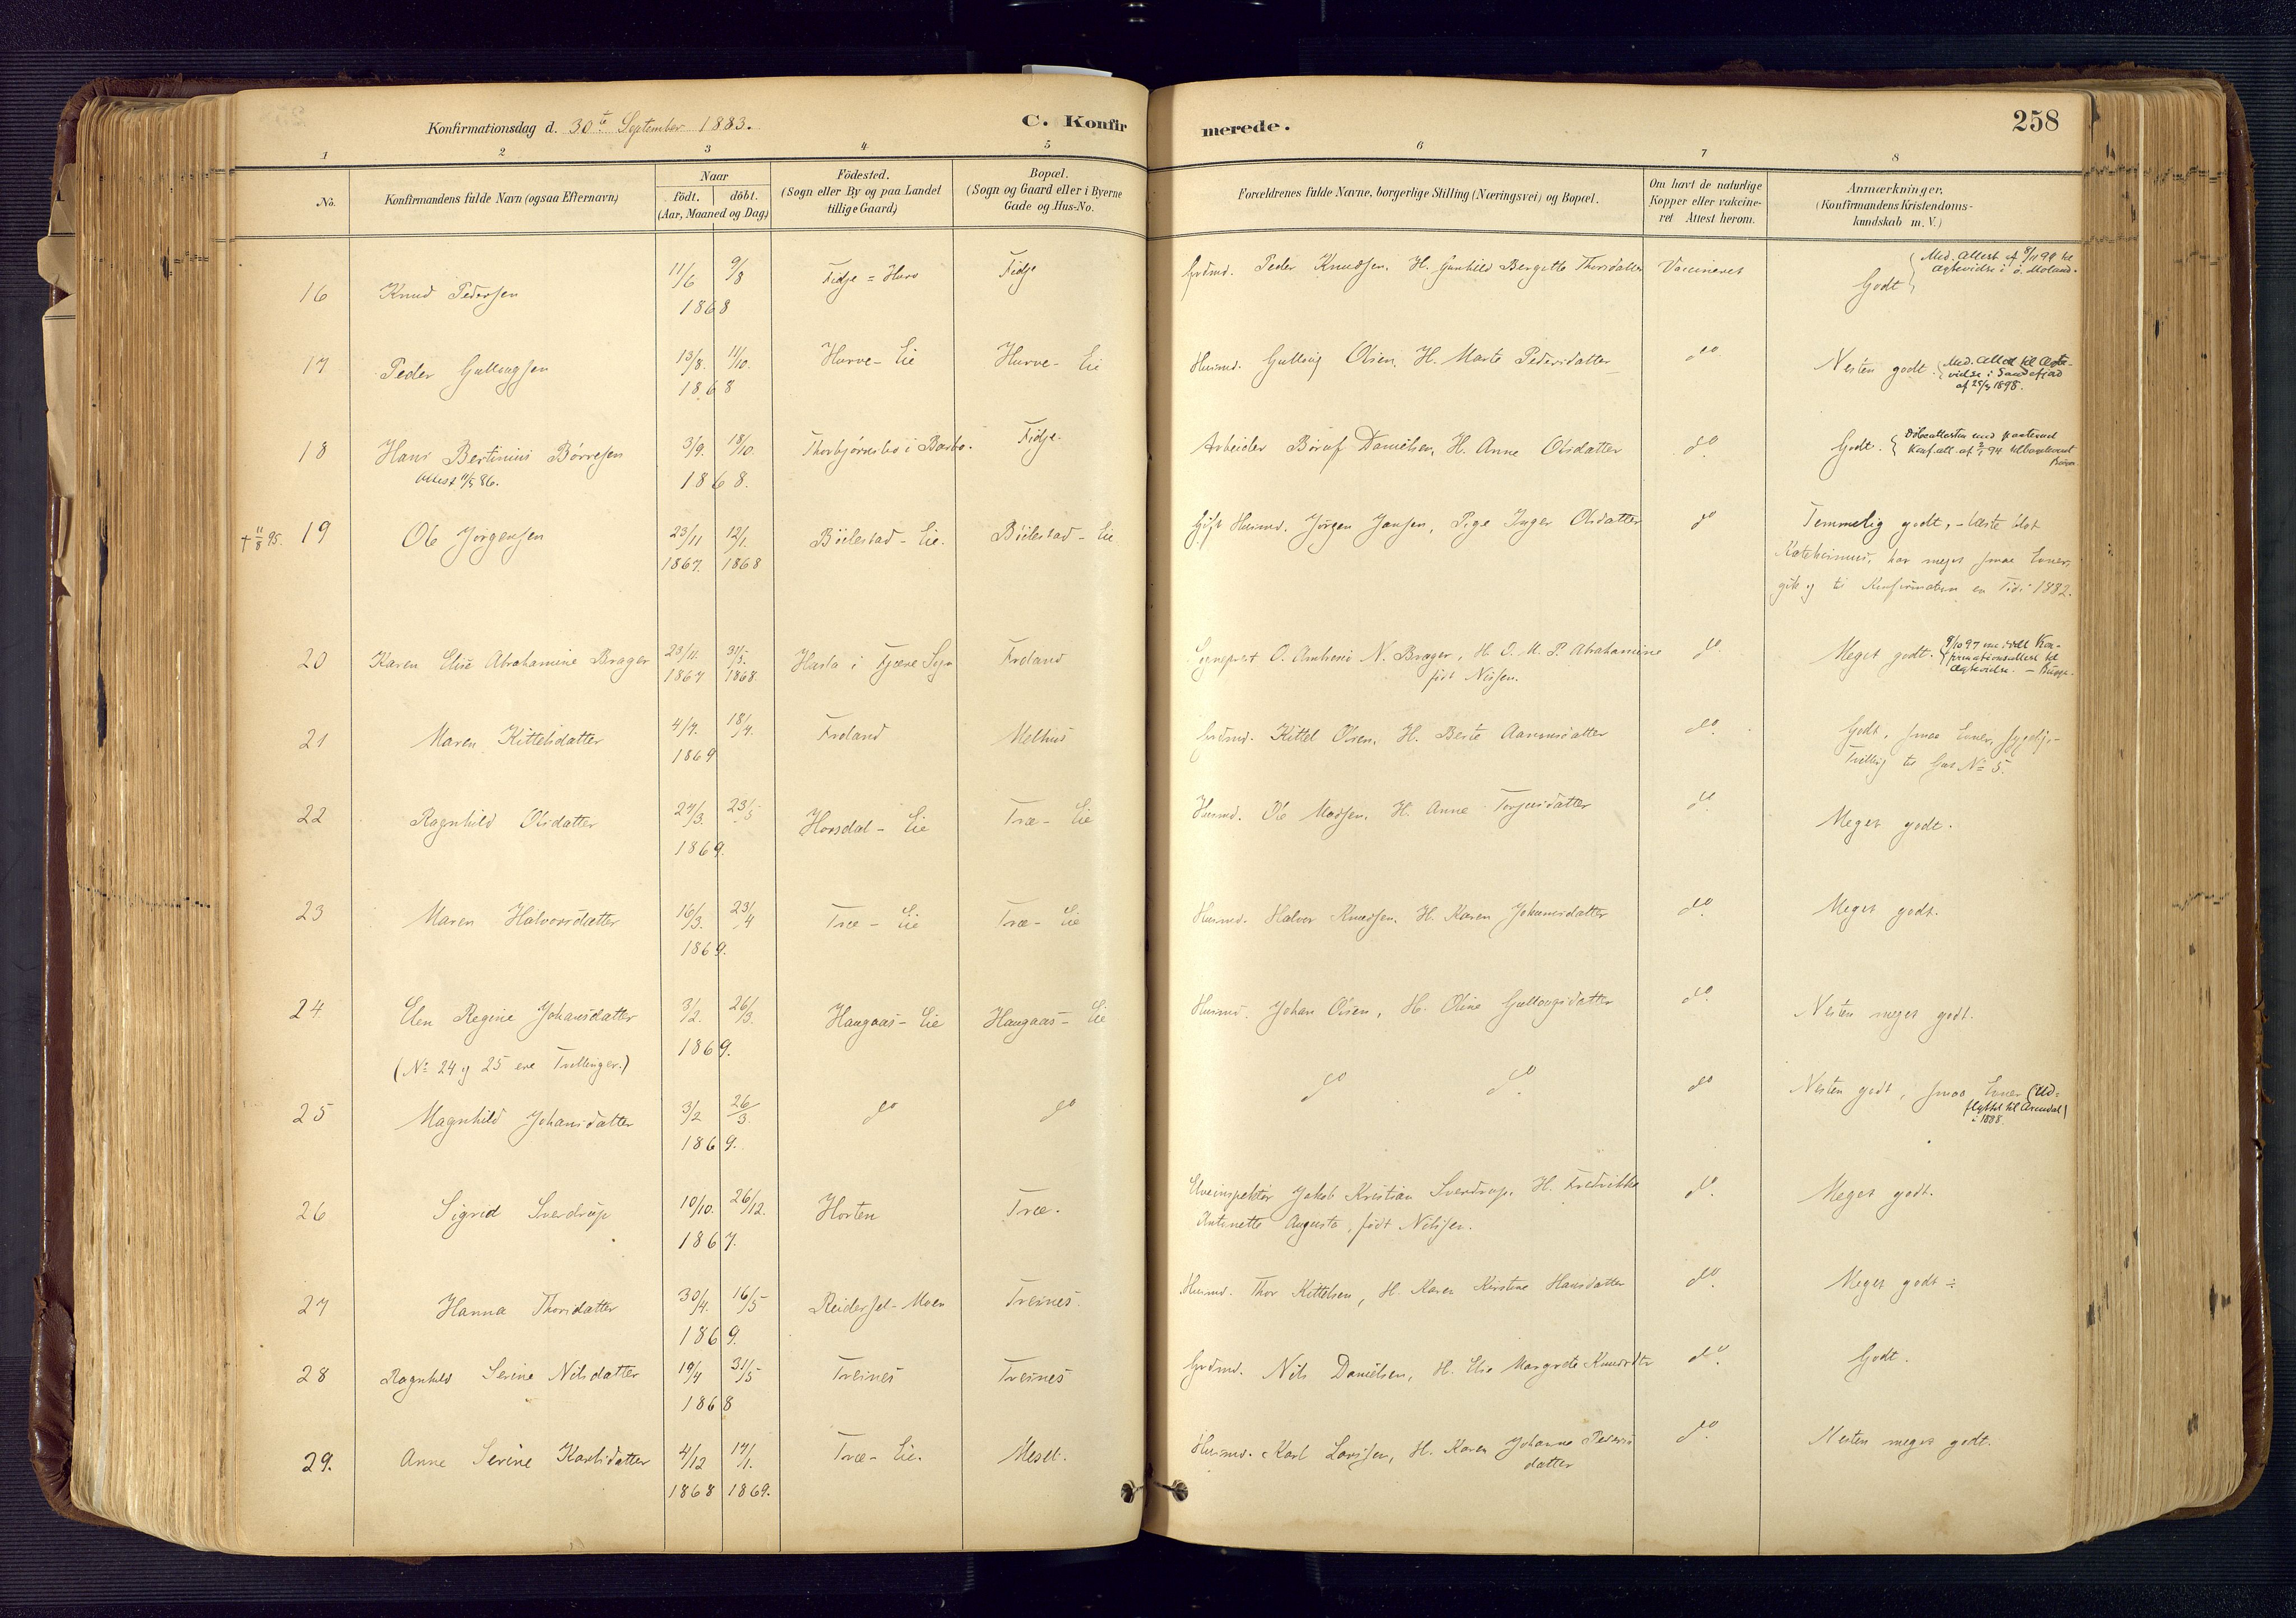 Konfirmationsdag d. 30te September 1883.
C. Konfirmerede.
258
1 2 3 4 5 6 7 8
No.
Konfirmandens fulde Navn (ogsaa Efternavn)
Naar
födt. döbt.
(Aar, Maaned og Dag)
Födested.
(Sogn eller By og paa Landet
tillige Gaard)
Bopæl.
(Sogn og Gaard eller i Byerne
Gade og Hus-No.
Forældrenes fulde Navne, borgerlige Stilling (Næringsvei) og Bopæl.
Om havt de naturlige
Kopper eller vakcine-
ret Attest herom.
Anmærkninger.
(Konfirmandens Kristendoms-
kundskab m. V.)
16 Knud Pedersen 11/6 9/8 1868 Fidje = Hurv Fidje Grdmd. Peder Knudsen. H. Gunhild Bergitte Thorsdatter Vaccineret Godt
Med. Attest af 8/11 99 til
Ægtevielse i ö. Moland.
17 Peder Gullougsen 13/8. 11/10. 1868 Hurve- Eie Hurve- Eie Husmd. Gulloug Olsen, H. Marte Pedersdatter do Nesten godt.
Med. Attest til Ægte-
vielse i Sandefjord
1898.
18 Hans Bertinius Börresen 3/9. 18/10. 1868. Thorbjørnsbo i Barbo. Fidje. Arbeider Danielsen, H. Anne Olsdatter do. Godt.
Attest 11/5 86.
19 Ole Jörgensen 23/11 1867. 12/1. 1868 Böilestad- Eie. Böilestad- Eie Gift Husmd. Jörgen Jansen, Pige Inger Olsdatter do Temmelig godt, - læste blot
Katekismus, har meget smaa Evner,
gik og til Konfirmation en Tid i 1882.
20 Karen Elise Abrahamine Brager 23/11. 1867 31/3. 1868. Hasla i Fjære Sogn Froland Sogneprest O. Ambrosi N. Brager, H. O. M. P. Abrahamine do. Meget godt.
födt Nissen.
21 Maren Kittelsdatter 4/4. 18/4. 1869 Froland Melhus Grdmd. Kittel Olsen, H. Berte Aanensdatter do. Godt, smaa Evner, sygelig-
Tvilling til Gut No 5.
22 Ragnhild Olsdatter 27/3. 23/5 1869. Horsdal- Eie Træ- Eie Husmd. Ole Madsen, H. Anne Torjusdatter do. Meget godt.
23 Maren Halvorsdatter 16/3. 23/4 1869. Træ - Eie Træ- Eie Husmd. Halvor Knudsen, H. Karen Johannesdatter do. Meget godt.
24. Elen Regine Johansdatter 3/2. 26/3. 1869. Haugaas- Eie Haugaas- Eie Husmd. Johan Olsen, H. Oline Gullougsdatter do. Nesten meget godt.
(No 24 og 25 ere Tvillinger.)
25 Magnhild Johansdatter 3/2 26/3. 1869. do do do do. do Nesten godt, smaa Evner (Ud-
flyttet til Arendal)
i 1888.
26 Sigrid Sverdrup 10/10. 26/12. 1867. Horten Træ. Elveinspektör Jakob Kristian Sverdrup, H. Fredrikke do. Meget godt.
Antonette Augusta, födt Nilssen.
27 Hanna Thorsdatter 30/4. 16/5 1869. Reidersel- Moen Treines. Husmd. Thor Kittelsen, H. Karen Kirstine Hansdatter do. Meget godt ÷
28 Ragnhild Serine Nilsdatter 19/4 31/5 1868 Treines Treines Grdmd. Nils Danielsen, H. Elise Margrete Knudsdtr do. Godt.
29. Anne Serine Karlsdatter 4/12 1868 17/1. 1869. Træ- Eie. Mesel. Husmd. Karl Larssen, H. Karen Johanne Peders do. Nesten meget godt.
datter